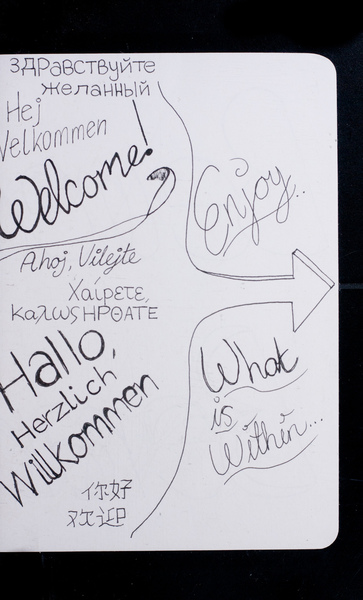 здравствуйте
желанный
Hej
Velkommen
Welcome!
Enjoy...
Ahoj, Vítejte
Χαίρετε,
καλως ΗΡΘΑΤΕ
Hallo,
Herzlich
Willkommen
What
is
Within...
你好
欢迎